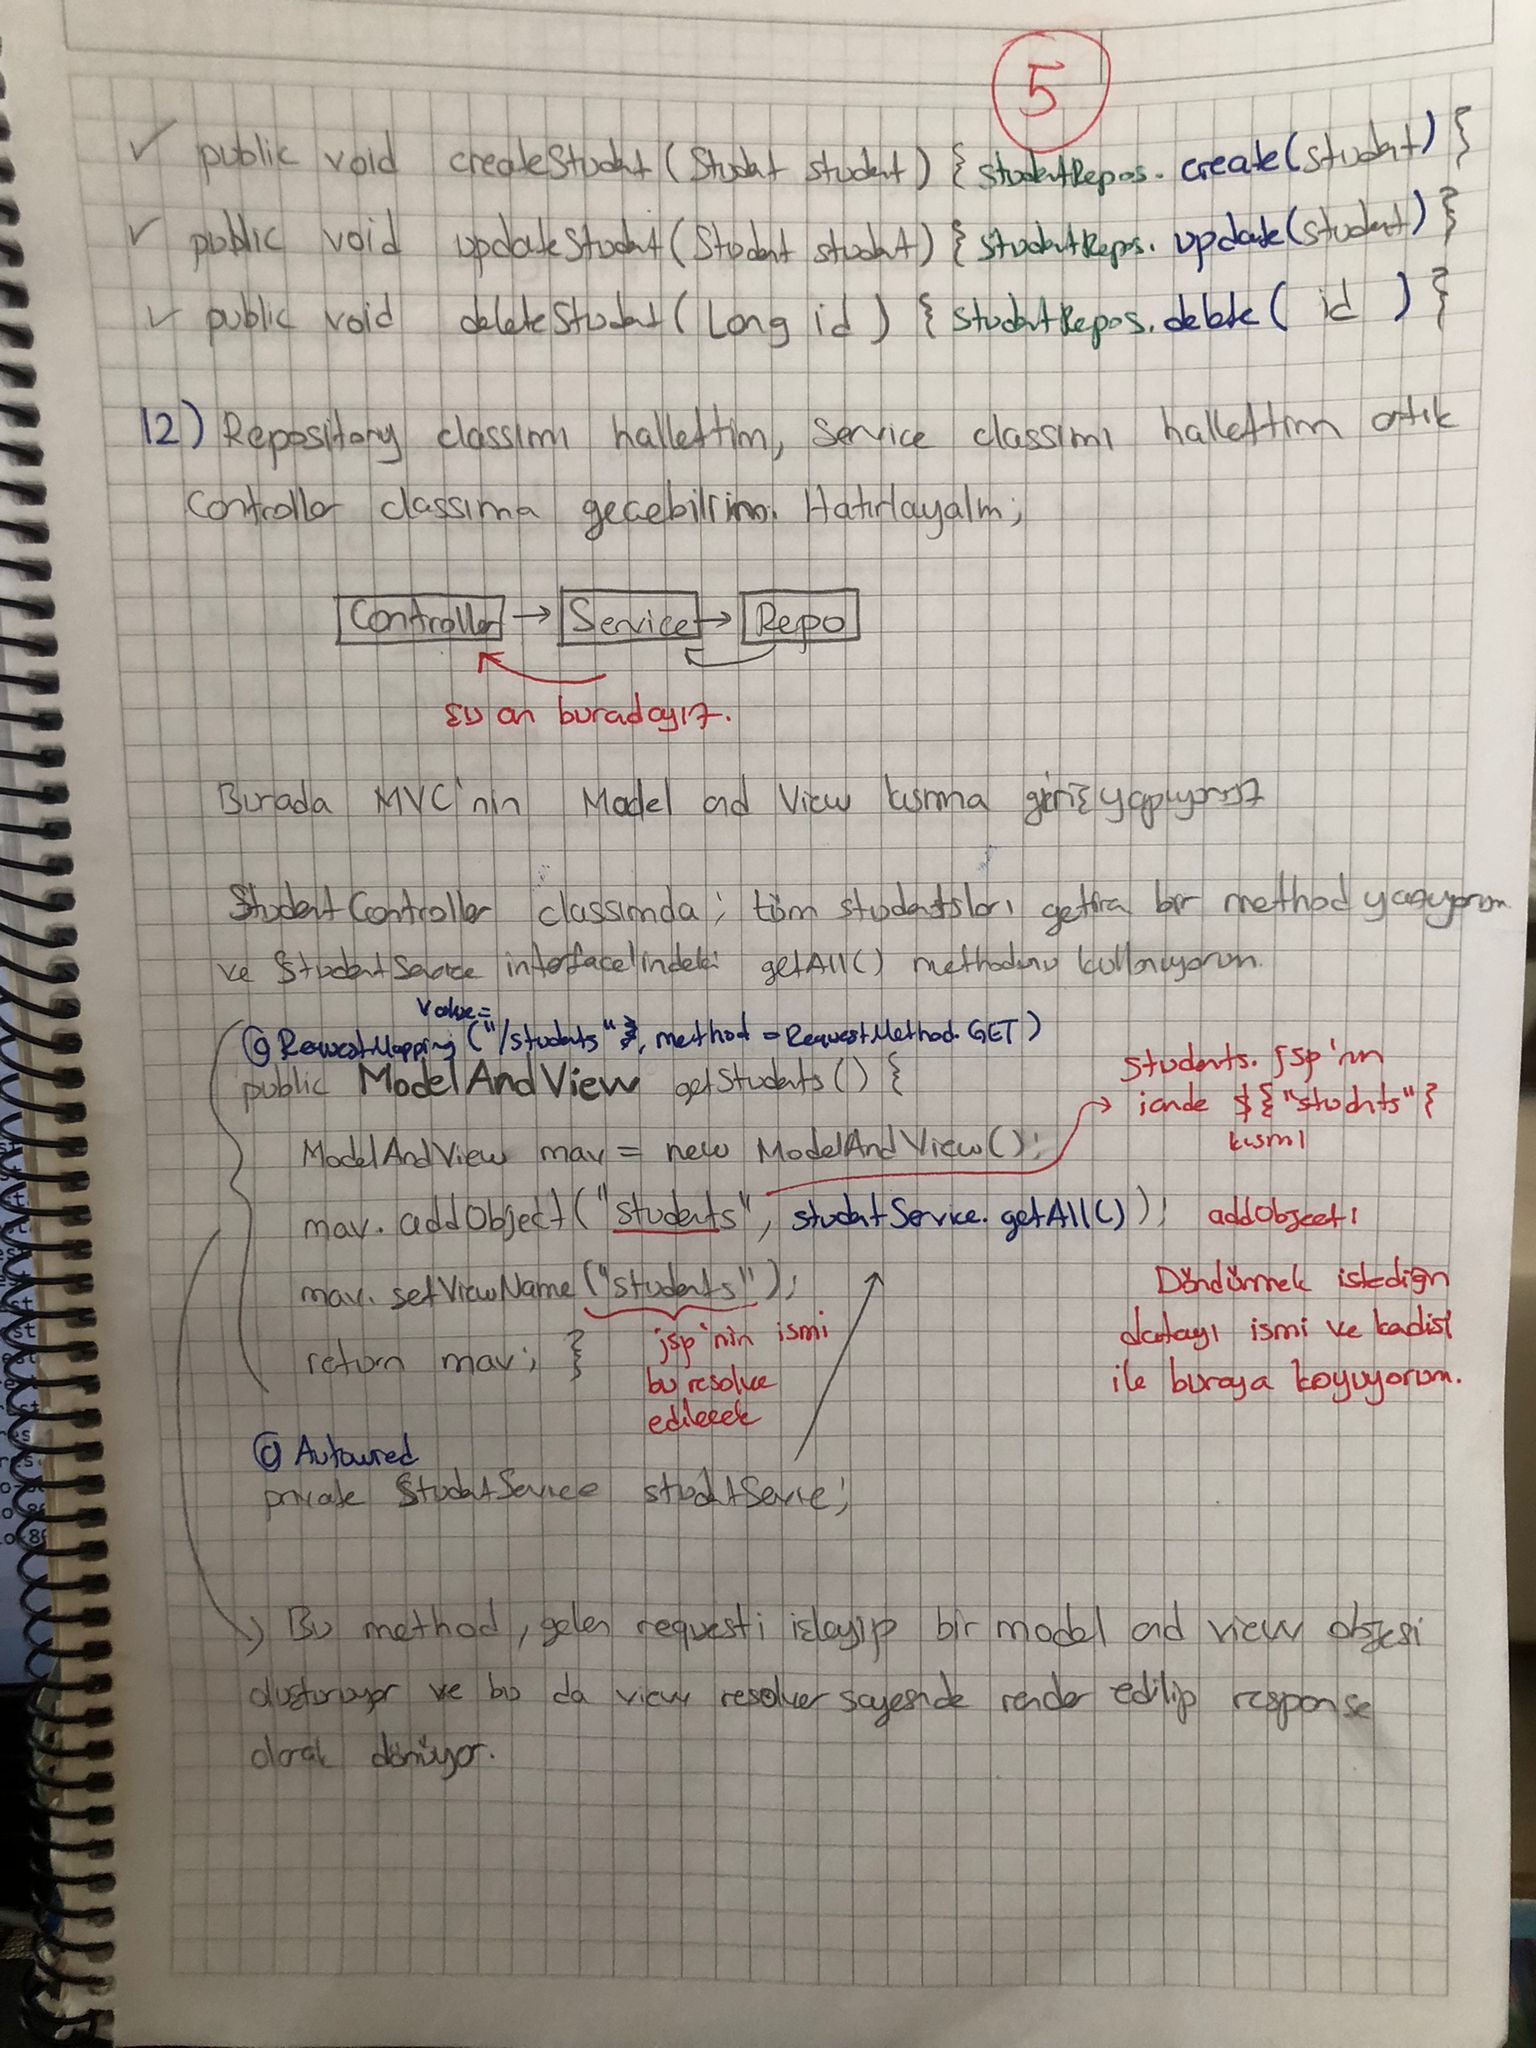 5
✓ public void createStudent (Student student) { studentRepos. create(student) }
✓ public void updateStudent (Student student) { studentRepos. update(student) }
✓ public void deleteStudent (Long id) { studentRepos. delete( id ) }
12) Repository classımı hallettim, Service classımı hallettim artık
Controller classıma geçebilirim. Hatırlayalım;
Controller → Service → Repo
Şu an buradayız.
Burada MVC'nin Model and View kısmına giriş yapıyoruz
StudentController classımda; tüm studentsları getiren bir method yazıyorum
ve StudentService interface'indeki getAll() methodunu kullanıyorum.
value=
@RequestMapping ("/students"}, method = RequestMethod.GET)
public ModelAndView getStudents () {
students. jsp'nin
içinde ${"students"}
kısmı
ModelAndView mav = new ModelAndView();
mav. addObject("students", studentService. getAll() );
addObject;
mav. setViewName ("students");
Döndürmek istediğin
datayı ismi ve kendisi
ile buraya koyuyorum.
jsp'nin ismi
bu resolve
edilecek
return mav; }
@Autowired
private StudentService studentService;
Bu method, gelen requesti işleyip bir model and view objesi
oluşturuyor ve bu da view resolver sayesinde render edilip response
olarak dönüyor.